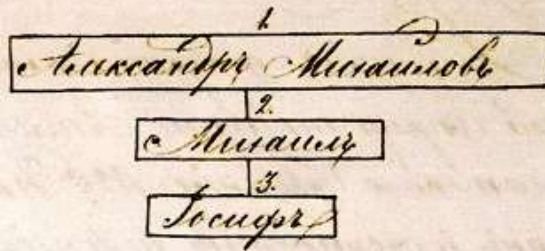 1.
Александръ Михаиловъ
2.
Михаилъ
3.
Іосифъ